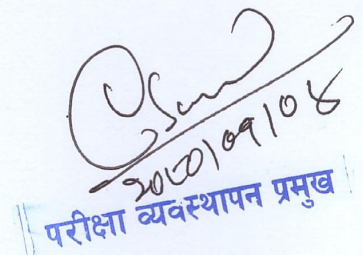 २०८०|०९|०४
परीक्षा व्यवस्थापन प्रमुख